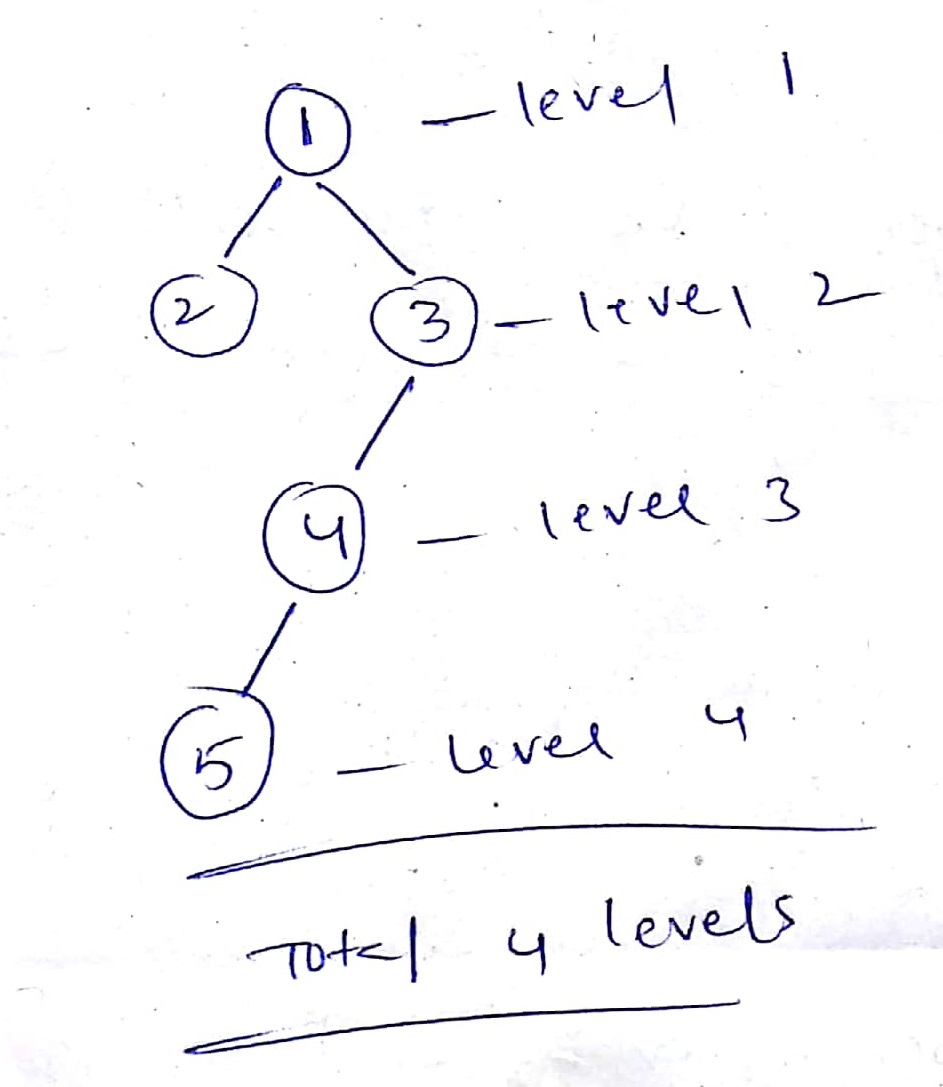 1 – level 1
2 3 – level 2
4 – level 3
5 – level 4
Total 4 levels